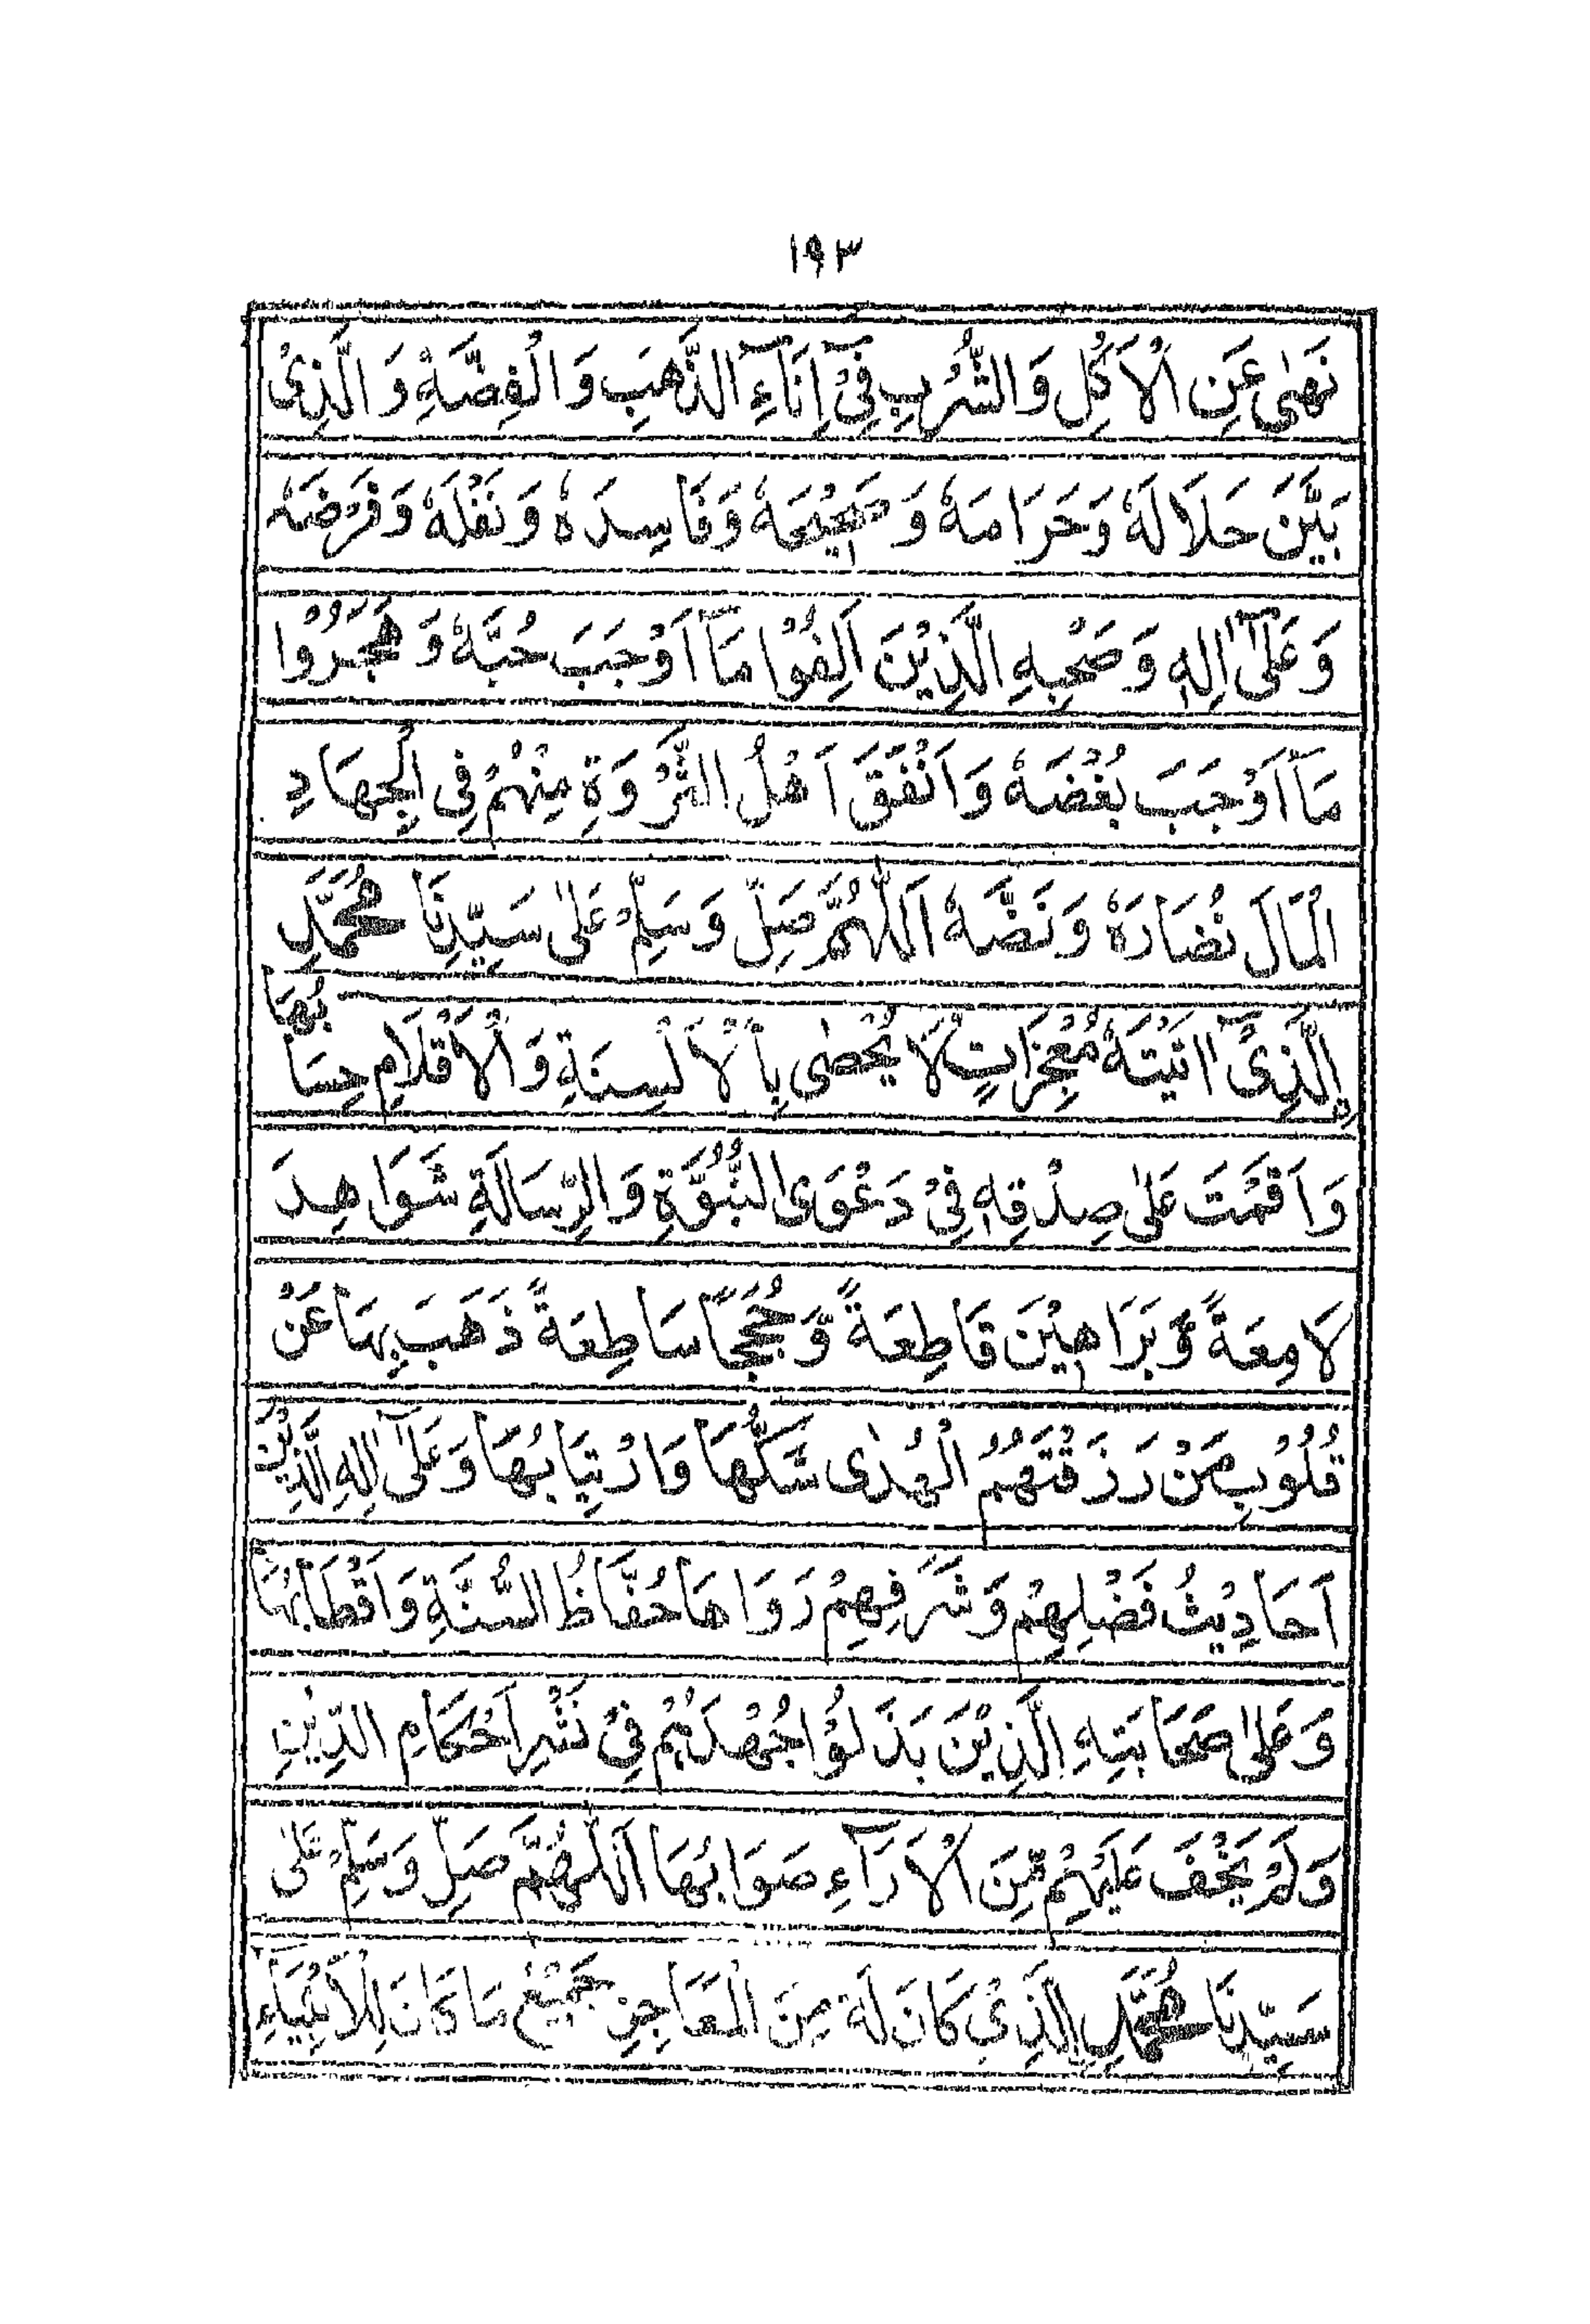 ١٩٣
نَهٰى عَنِ الْاَكْلِ وَالشُّرْبِ فِيْٓ اِنَآءِ الذَّهَبِ وَالْفِضَّةِ وَالَّذِىْ
بَيَّنَ حَلَالَهٗ وَحَرَامَهٗ وَصَحِيْحَهٗ وَفَاسِدَهٗ وَنَفْلَهٗ وَفَرْضَهٗ
وَعَلٰٓى اٰلِهٖ وَصَحْبِهِ الَّذِيْنَ اَلِفُوْا مَآ اَوْجَبَ حُبَّهٗ وَهَجَرُوْا
مَآ اَوْجَبَ بُغْضَهٗ وَاَنْفَقَ اَهْلُ الثَّرْوَةِ مِنْهُمْ فِى الْجِهَادِ
الْمَالَ نُضَارَهٗ وَنَضَّهٗ اَللّٰهُمَّ صَلِّ وَسَلِّمْ عَلٰى سَيِّدِنَا مُحَمَّدِ
ِالَّذِىْٓ اٰتَيْتَهٗ مُعْجِزَاتٍ لَا يُحْصٰى بِالْاَلْسِنَةِ وَالْاَقْلَامِ حِسَابُهَا
وَاَقَمْتَ عَلٰى صِدْقِهٖ فِيْ دَعْوَى النُّبُوَّةِ وَالرِّسَالَةِ شَوَاهِدَ
لَامِعَةً وَّبَرَاهِيْنَ قَاطِعَةً وَّحُجَجًا سَاطِعَةً ذَهَبَ بِهَا عَنْ
قُلُوْبِ مَنْ رَزَقْتَهُمُ الْهُدٰى شَكُّهَا وَارْتِيَابُهَا وَعَلٰٓى اٰلِهِ الَّذِيْنَ
اَحَادِيْثُ فَضْلِهِمْ وَشَرَفِهِمْ رَوَاهَا حُفَّاظُ السُّنَّةِ وَاَقْطَابُهَا
وَعَلٰى صَحَابَتِهِ الَّذِيْنَ بَذَلُوْا جُهْدَهُمْ فِيْ نَشْرِ اَحْكَامِ الدِّيْنِ
وَلَمْ يَخْفَ عَلَيْهِمْ مِّنَ الْاَرَآءِ صَوَابُهَا اَللّٰهُمَّ صَلِّ وَسَلِّمْ عَلٰى
سَيِّدِنَا مُحَمَّدِ ِالَّذِىْ كَانَ لَهٗ مِنَ الْمَعَاجِزِ جَمِيْعُ مَا كَانَ لِلْاَنْبِيَآءِ